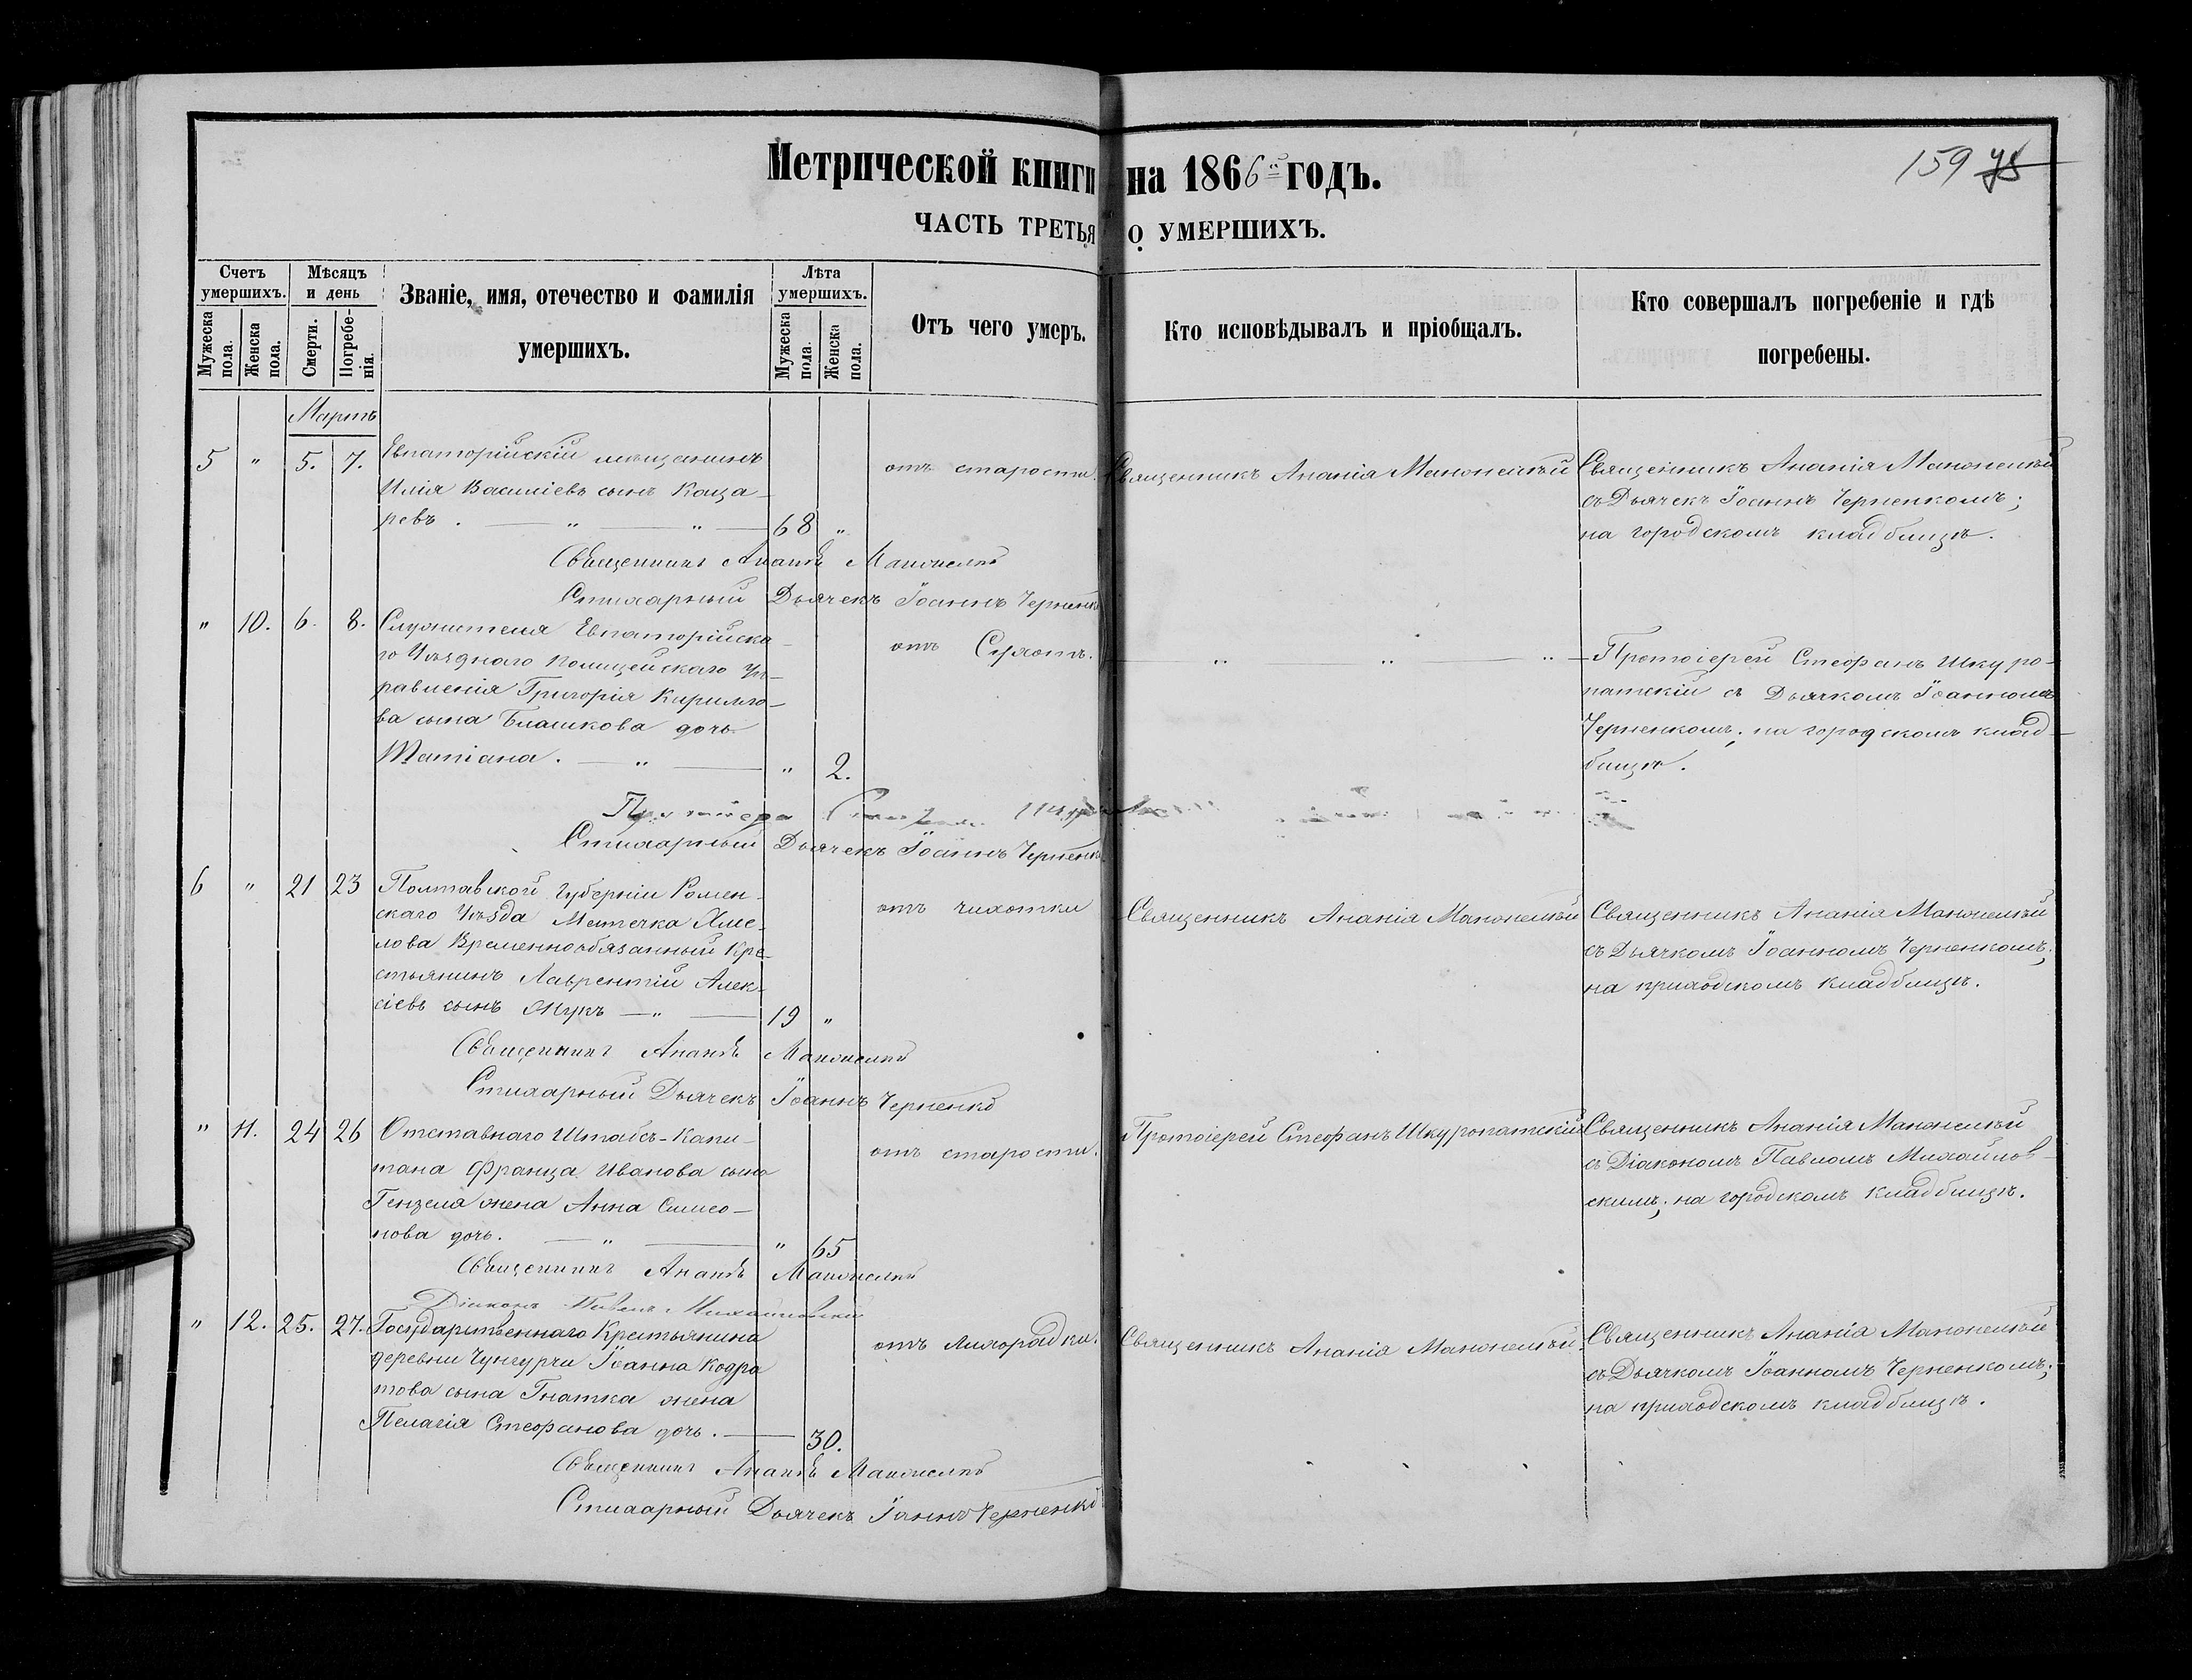 159 75
Метрической книги на 1866й годъ.
ЧАСТЬ ТРЕТЬЯ О УМЕРШИХЪ.
Счетъ умершихъ.
Мужеска пола.
Женска пола.
Мѣсяцъ и день
Смерти.
Погребенія.
Званіе, имя, отечество и фамилія умершихъ.
Лѣта умершихъ.
Мужеска пола.
Женска пола.
Отъ чего умеръ.
Кто исповѣдывалъ и пріобщалъ.
Кто совершалъ погребеніе и гдѣ погребены.
Мартъ
5 " 5. 7.
Евпаторійскій мѣщанинъ
Илія Василіевъ сынъ Каца-
ревъ. — " — " — 68 "
отъ старости.
Священникъ Ананія Маконскій
Священникъ Ананія Маконскій
съ Дьячек Іоаннъ Черненкомъ;
на городскомъ кладбищѣ.
Священникъ Ананія
Стихарный Дьячекъ Іоаннъ Черненко
" 10. 6. 8.
Служителя Евпаторійска-
го Уѣзднаго Полицейскаго Уп-
равленія Григорія Кирилло-
ва сына Блашкова дочь
Татіана. — " — " 2.
отъ
" " "
Протоіерей Стефанъ Шкуро-
патскій съ Дьячкомъ Іоанномъ
Черненкомъ; на городскомъ клад-
бищѣ.
Стихарный Дьячекъ Іоаннъ Черненко
6 " 21 23
Полтавской Губерніи Ромен-
скаго Уѣзда Местечка Хме-
лова Временнообязанный Кре-
стьянинъ Лаврентій Алек-
сіевъ сынъ Жукъ — " — 19 "
отъ чихотки
Священникъ Ананія Маконскій
Священникъ Ананія Маконскій
съ Дьячкомъ Іоанномъ Черненкомъ;
на приходскомъ кладбищѣ.
Священникъ Ананія
Стихарный Дьячекъ Іоаннъ Черненко
" 11. 24 26
Отставнаго Штабсъ-Капи-
тана Франца Иванова сына
Гензеля жена Анна Симео-
нова дочь. — " — " 65
отъ старости.
Протоіерей Стефанъ Шкуропатскій
Священникъ Ананія Маконскій
съ Діакономъ Павломъ Михайлов-
скимъ; на городскомъ кладбищѣ.
Священникъ Ананія
Діаконъ Павелъ Михайловскій
" 12. 25. 27.
Государственнаго Крестьянина
деревни Чунгурчи Іоанна Кодра
това сына Гнатка жена
Пелагія Стефанова дочь. — 30.
отъ лихорадки.
Священникъ Ананія Маконскій.
Священникъ Ананія Маконскій
съ Дьячкомъ Іоанномъ Черненкомъ;
на приходскомъ кладбищѣ.
Священникъ Ананія
Стихарный Дьячекъ Іоаннъ Черненко